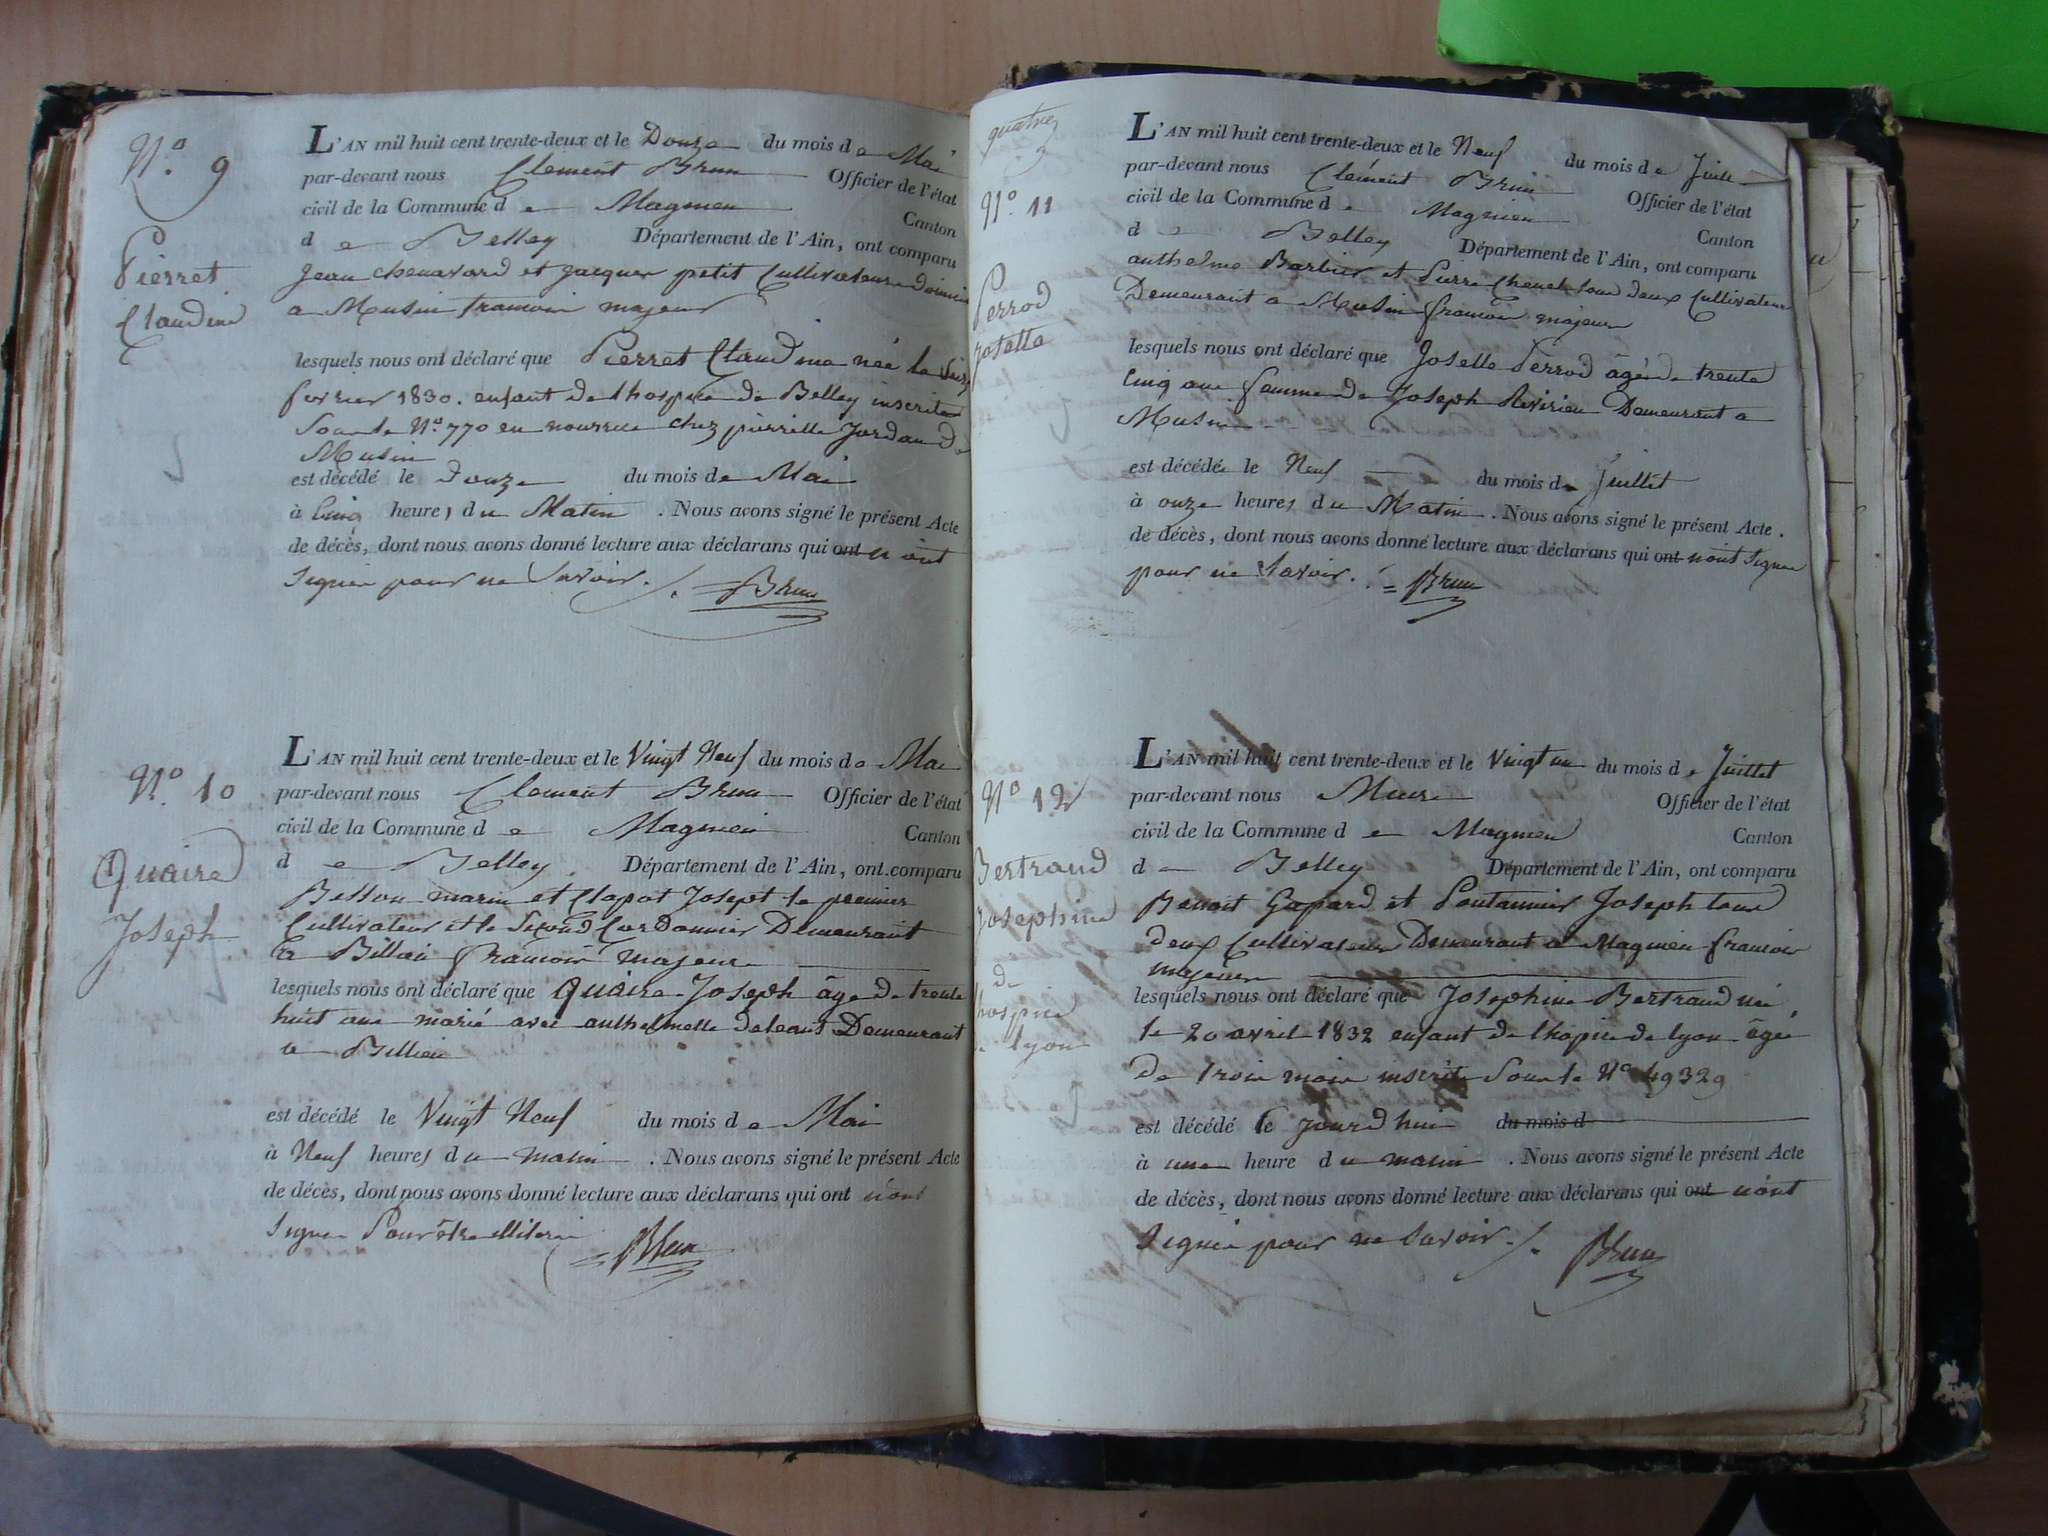 N.o 9
Pierret
Claudine
L'AN mil huit cent trente-deux et le Douze du mois de Mai
par-devant nous Clement Brun Officier de l'état
civil de la Commune de Magnieu Canton
de Belley Département de l'Ain, ont comparu
Jean chenavard et jacques petit Cultivateurs
a Musin francois majeurs
lesquels nous ont déclaré que Pierret Claudine née le
fevrier 1830. enfant de lhospice de Belley inscrite
Sous le No. 770 en nourrice chez pierrette Jordan de
Musin
est décédé le Douze du mois de Mai
à Cinq heures du Matin. Nous avons signé le présent Acte
de décès, dont nous avons donné lecture aux déclarans qui ont n ont
Signés pour ne Savoir. Brun
N.o 10
Quaire
Joseph
L'AN mil huit cent trente-deux et le Vingt Neuf du mois de Mai
par-devant nous Clement Brun Officier de l'état
civil de la Commune de Magnieu Canton
de Belley Département de l'Ain, ont comparu
Besson marin et Clapot Josept le premier
Cultivateur et le Second Cordonnier Demeurant
a Billieu francois majeurs
lesquels nous ont déclaré que Quaire Joseph âge de trente
huit ans marié avec anthelmette Demeurant
a Billieu
est décédé le Vingt Neuf du mois de Mai
à Neuf heures du matin. Nous avons signé le présent Acte
de décès, dont nous avons donné lecture aux déclarans qui ont n'ont
Signer Pour être illiterés Brun
quatre
N.o 11
Perrod
josette
L'AN mil huit cent trente-deux et le Neuf du mois de Juill
par-devant nous Clément Brun Officier de l'état
civil de la Commune de Magnieu Canton
de Belley Département de l'Ain, ont comparu
anthelme Barbier et Pierre tous deux Cultivateur
Demeurant a Musin francois majeurs
lesquels nous ont déclaré que Josette Perrod âgée de trente
Cinq ans femme de Joseph Demeurant a
Musin
est décédée le Neuf du mois de Juillet
à onze heures du Matin. Nous avons signé le présent Acte.
de décès, dont nous avons donné lecture aux déclarans qui ont n'ont Signer
pour ne Savoir. Brun
N.o 12
Bertrand
Josephine
de
lhospice
de lyon
L'AN mil huit cent trente-deux et le Vingt un du mois de Juillet
par-devant nous Maire Officier de l'état
civil de la Commune de Magnieu Canton
de Belley Département de l'Ain, ont comparu
Benoit Gaspard et Joseph tous
deux Cultivateur Demeurant a Magnieu francois
majeurs
lesquels nous ont déclaré que Josephine Bertrand née
le 20 avril 1832 enfant de lhopice de lyon âgée
de trois mois inscrite Sous le No 49329
est décédé le jourd'hui du mois d
à une heure du matin. Nous avons signé le présent Acte
de décès, dont nous avons donné lecture aux déclarans qui ont n'ont
Signés pour ne Savoir. Brun